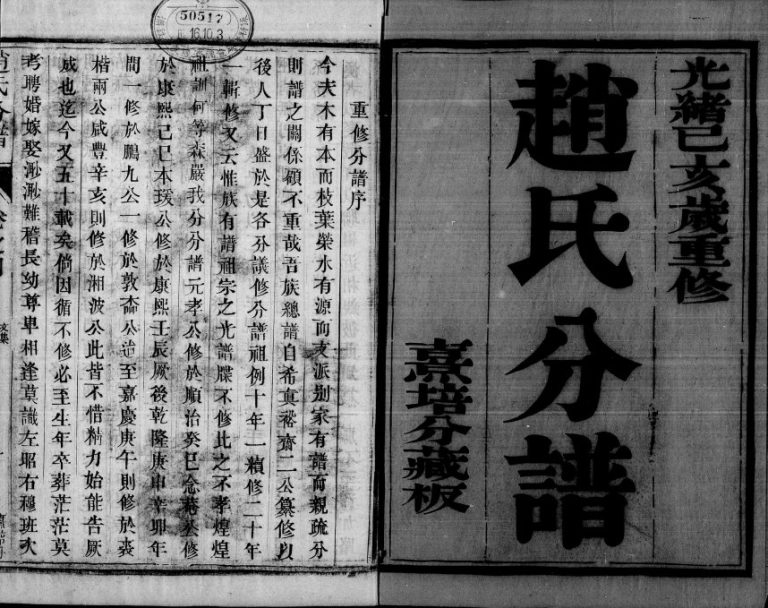 光緒己亥歲重修
趙氏分譜
熹培分藏板
重修分譜序
今夫木有本而枝葉榮水有源而支派别家有譜而親疏分
則譜之關係碩不重哉吾族總譜自希真裕齋二公纂修以
後人丁日盛於是各分議修分譜祖例十年一續修二十年
一輯修又云惟族有譜祖宗之光譜牒不修此之不孝煌煌
祖訓何等森嚴我分分譜元孝公修於順治癸巳念 公修
於康熙己巳本瑗公修於康熙壬辰厥後乾隆庚申辛卯年
間一修於鵬九公一修於敦崙公迨至嘉慶庚午則修於裴
楷兩公咸豐辛亥則修於湘波公此皆不惜精力始能告厥
成也迄今又五十載矣倘因循不修必至生年卒葬茫茫莫
考聘婚嫁娶渺渺難稽長幼尊卑相逢莫識左昭右穆班次
趙氏分譜
50517
16.10.3